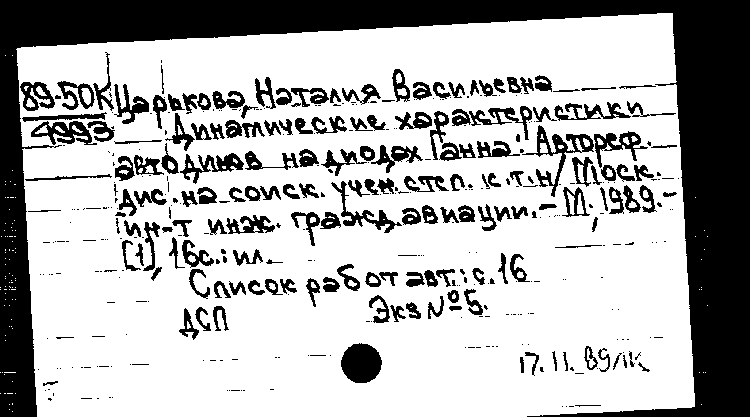 89-50К Царькова, Наталия Васильевна
4993 Динамические характеристики
автодинов на диодах Ганна: Автореф.
дис. на соиск. учен. степ. к.т.н / Моск.
ин-т инж. гражд. авиации. - М., 1989. -
[1], 16с.: ил.
Список работ авт.: с. 16
ДСП Экз № 5.
17.11.89